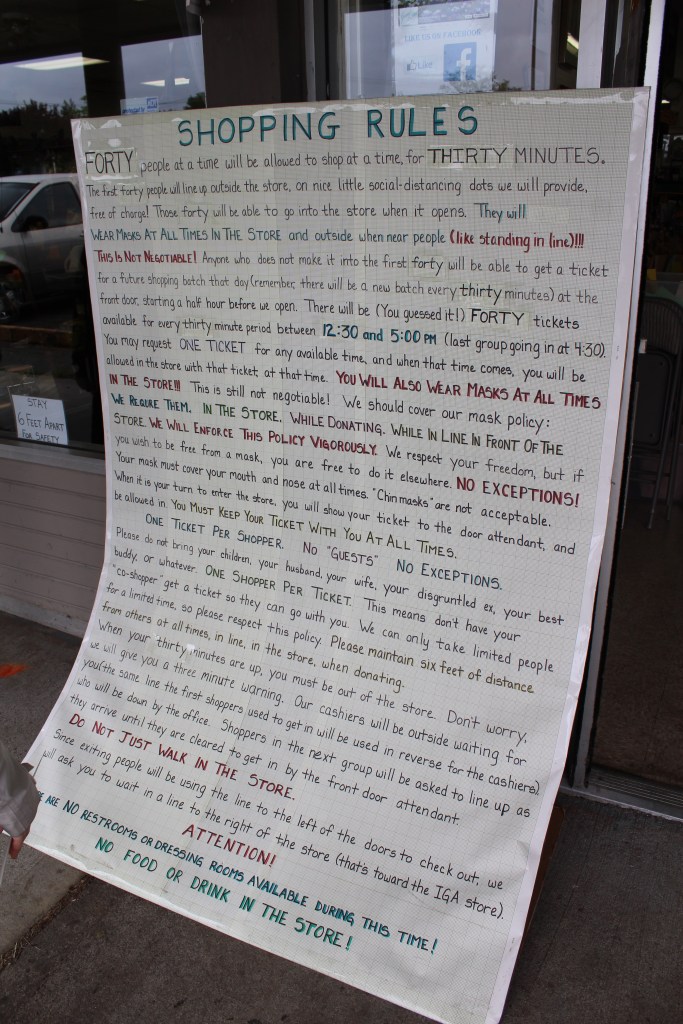 LIKE US ON FACEBOOK
Like
f
STAY
6 FEET APART
FOR SAFETY
SHOPPING RULES
FORTY people at a time will be allowed to shop at a time, for THIRTY MINUTES.
The first forty people will line up outside the store, on nice little social-distancing dots we will provide,
free of charge! Those forty will be able to go into the store when it opens. They will
WEAR MASKS AT ALL TIMES IN THE STORE and outside when near people (like standing in line)!!!
THIS IS NOT NEGOTIABLE! Anyone who does not make it into the first forty will be able to get a ticket
for a future shopping batch that day (remember, there will be a new batch every thirty minutes) at the
front door, starting a half hour before we open. There will be (You guessed it!) FORTY tickets
available for every thirty minute period between 12:30 and 5:00 PM (last group going in at 4:30).
You may request ONE TICKET for any available time, and when that time comes, you will be
allowed in the store with that ticket at that time. YOU WILL ALSO WEAR MASKS AT ALL TIMES
IN THE STORE!!! This is still not negotiable! We should cover our mask policy:
WE REQUIRE THEM. IN THE STORE. WHILE DONATING. WHILE IN LINE IN FRONT OF THE
STORE. WE WILL ENFORCE THIS POLICY VIGOROUSLY. We respect your freedom, but if
you wish to be free from a mask, you are free to do it elsewhere. NO EXCEPTIONS!
Your mask must cover your mouth and nose at all times. "Chin masks" are not acceptable.
When it is your turn to enter the store, you will show your ticket to the door attendant, and
be allowed in. YOU MUST KEEP YOUR TICKET WITH YOU AT ALL TIMES.
ONE TICKET PER SHOPPER. NO "GUESTS" NO EXCEPTIONS.
Please do not bring your children, your husband, your wife, your disgruntled ex, your best
buddy, or whatever. ONE SHOPPER PER TICKET. This means don't have your
"co-shopper" get a ticket so they can go with you. We can only take limited people
for a limited time, so please respect this policy. Please maintain six feet of distance
from others at all times, in line, in the store, when donating.
When your thirty minutes are up, you must be out of the store. Don't worry,
we will give you a three minute warning. Our cashiers will be outside waiting for
you (the same line the first shoppers used to get in will be used in reverse for the cashiers)
who will be down by the office. Shoppers in the next group will be asked to line up as
they arrive until they are cleared to get in by the front door attendant.
DO NOT JUST WALK IN THE STORE.
Since exiting people will be using the line to the left of the doors to check out, we
will ask you to wait in a line to the right of the store (that's toward the IGA store).
ATTENTION!
ARE NO RESTROOMS OR DRESSING ROOMS AVAILABLE DURING THIS TIME!
NO FOOD OR DRINK IN THE STORE!